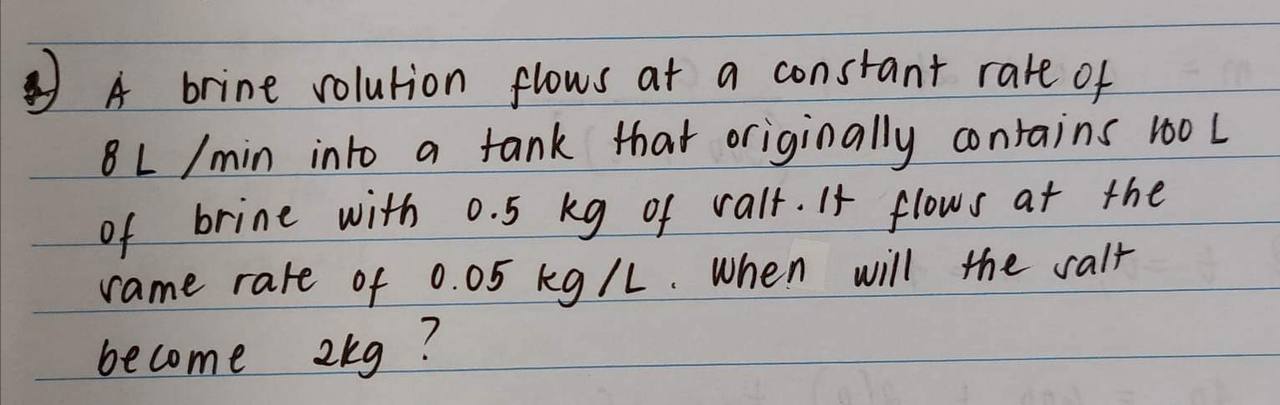 2) A brine solution flows at a constant rate of
8 L /min into a tank that originally contains 100 L
of brine with 0.5 kg of salt. It flows at the
same rate of 0.05 kg/L. When will the salt
become 2kg ?